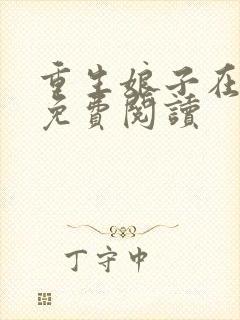 重生娘子在
免費閱讀
丁守中